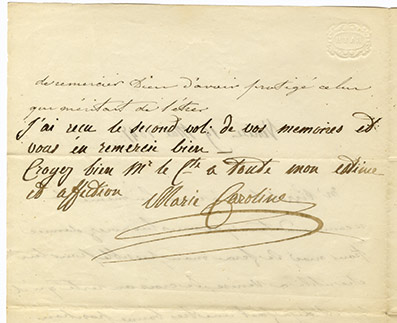 de remercier Dieu d'avoir protigé celui
qui méritait de l'etrer
J'ai recu le second vol. de vos memoires et
vous en remercie bien
Croyez bien Mr le Cte a toute mon estime
et affection Marie Caroline